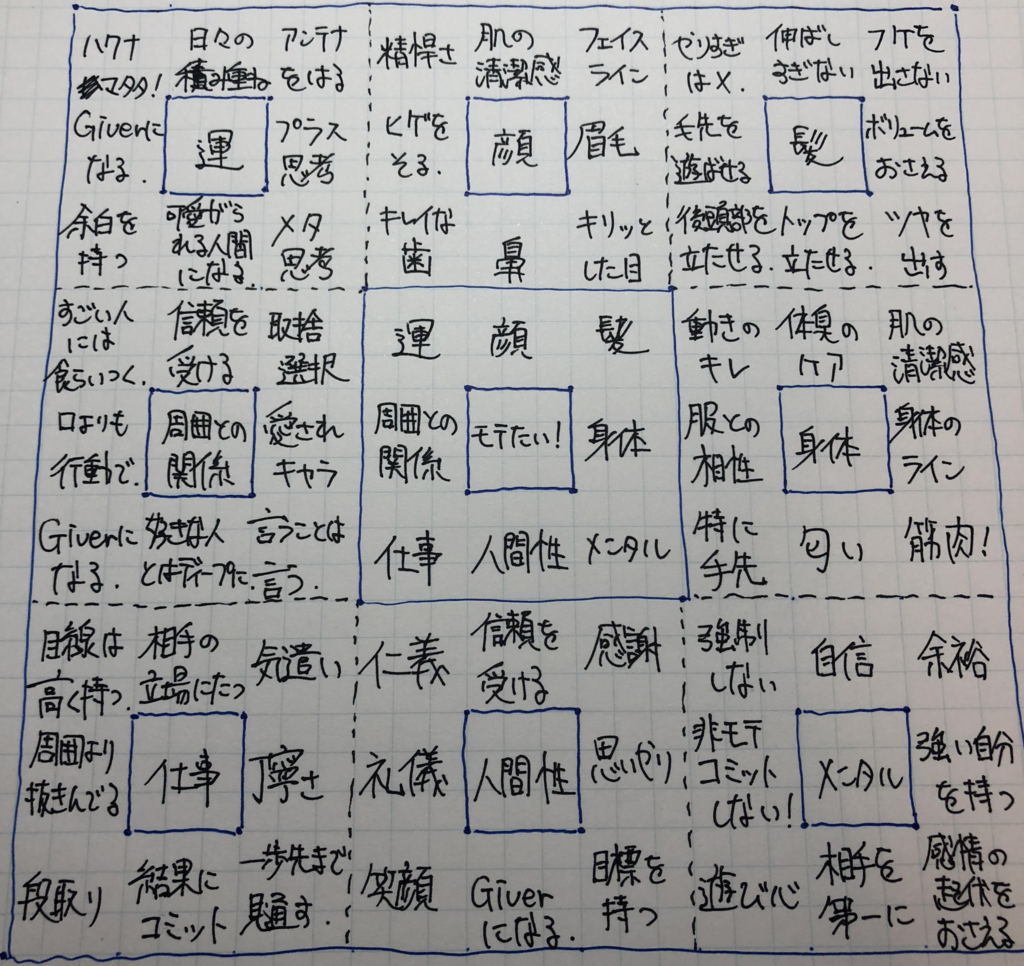 ハクナ
マタタ!
日々の
積み重ね
アンテナ
をはる
Giverに
なる.
運
プラス
思考
余白を
持つ
可愛がら
れる人間
になる.
メタ
思考
精悍さ
肌の
清潔感
フェイス
ライン
ヒゲを
そる.
顔
眉毛
キレイな
歯
鼻
キリッと
した目
やりすぎ
は×.
伸ばし
すぎない
フケを
出さない
毛先を
遊ばせる
髪
ボリュームを
おさえる
後頭部を
立たせる.
トップを
立たせる.
ツヤを
出す
すごい人
には
食らいつく.
信頼を
受ける
取捨
選択
口よりも
行動で.
周囲との
関係
愛され
キャラ
Giverに
なる.
好きな人
とはディープに.
言うことは
言う.
運
顔
髪
周囲との
関係
モテたい!
身体
仕事
人間性
メンタル
動きの
キレ
体臭の
ケア
肌の
清潔感
服との
相性
身体
身体の
ライン
特に
手先
匂い
筋肉!
目線は
高く持つ.
相手の
立場にたつ
気遣い
周囲より
抜きんでる
仕事
丁寧さ
段取り
結果に
コミット
一歩先まで
見通す.
仁義
信頼を
受ける
感謝
礼儀
人間性
思いやり
笑顔
Giver
になる.
目標を
持つ
強制
しない
自信
余裕
非モテ
コミット
しない!
メンタル
強い自分
を持つ
遊び心
相手を
第一に
感情の
起伏を
おさえる